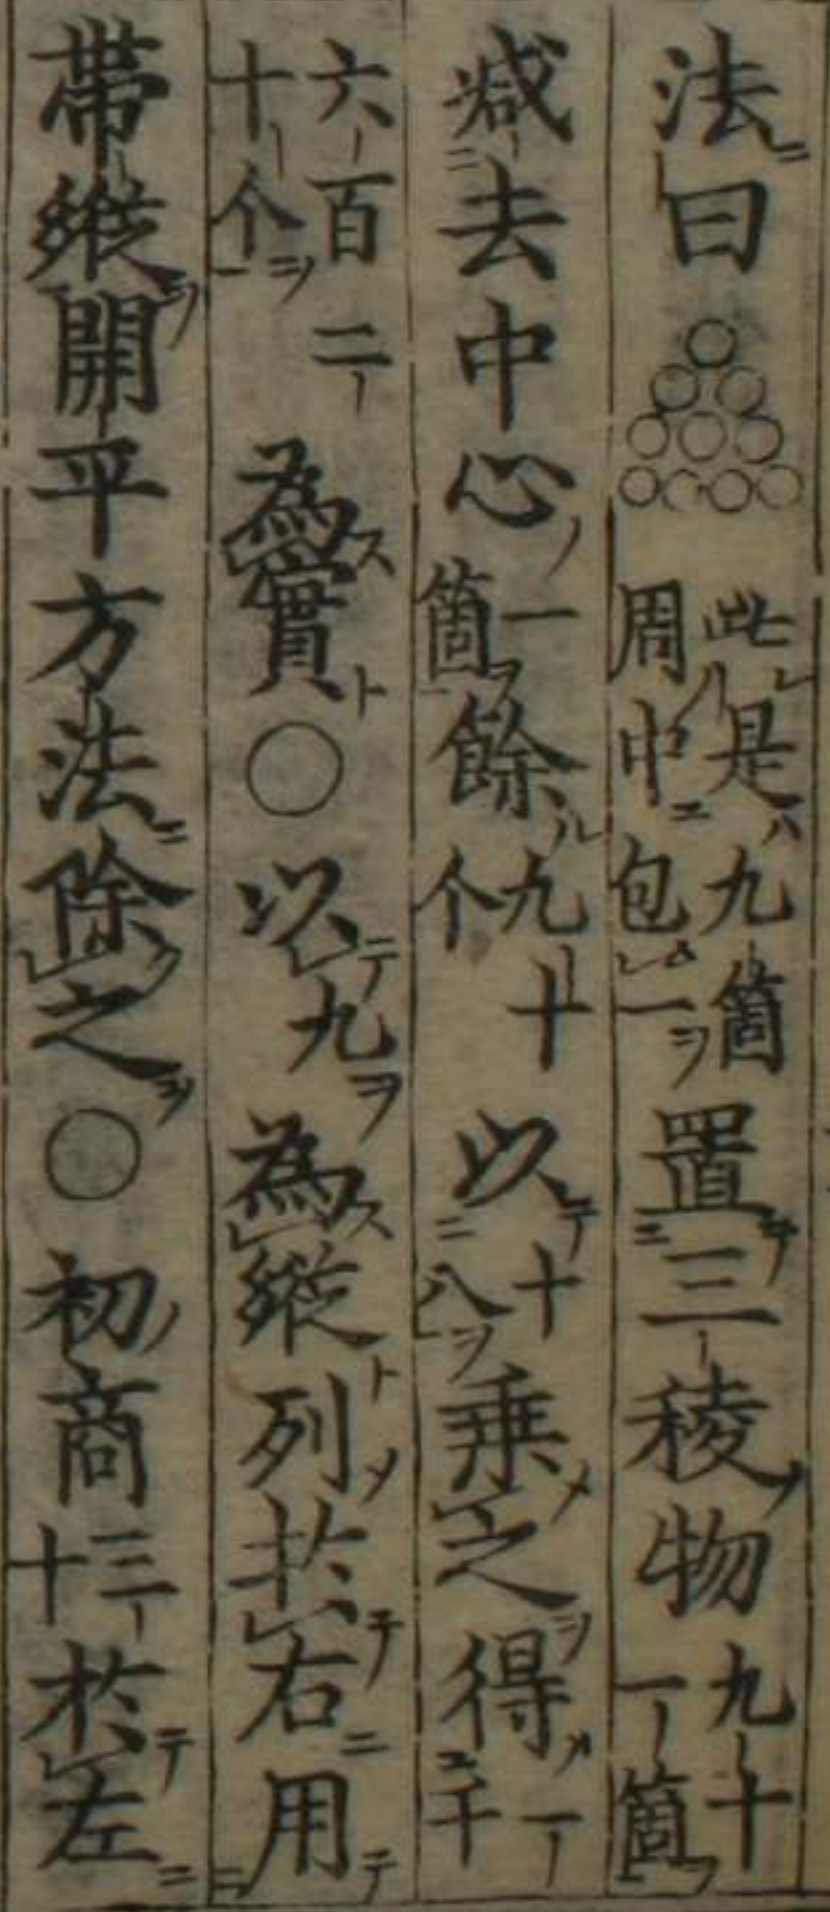 法曰此是九箇周中包一置三稜物九十一箇
减去中心一箇餘九十个以十八乗之得一千
六百二十个為實○以九為縱列於右用
帶縱開平方法除之○初商三十於左